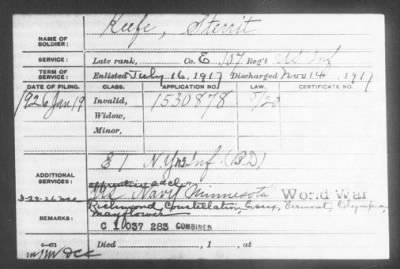 NAME OF SOLDIER: Keefe, Sterrit
SERVICE: Late rank, Co. E 157 Reg't US Inf
TERM OF SERVICE: Enlisted July 16, 1917 Discharged Nov 14, 1917
DATE OF FILING. CLASS. APPLICATION NO. LAW. CERTIFICATE NO.
1926 Jan 19 Invalid, 1530878
Widow,
Minor,
ADDITIONAL SERVICES: Inf. (B.D)
US Navy Minnesota World War
REMARKS: Richmond, Constellation, Essex, Vermont, Olympia,
Mayflower
C 1 037 283 COMBINED
Died , 1 , at